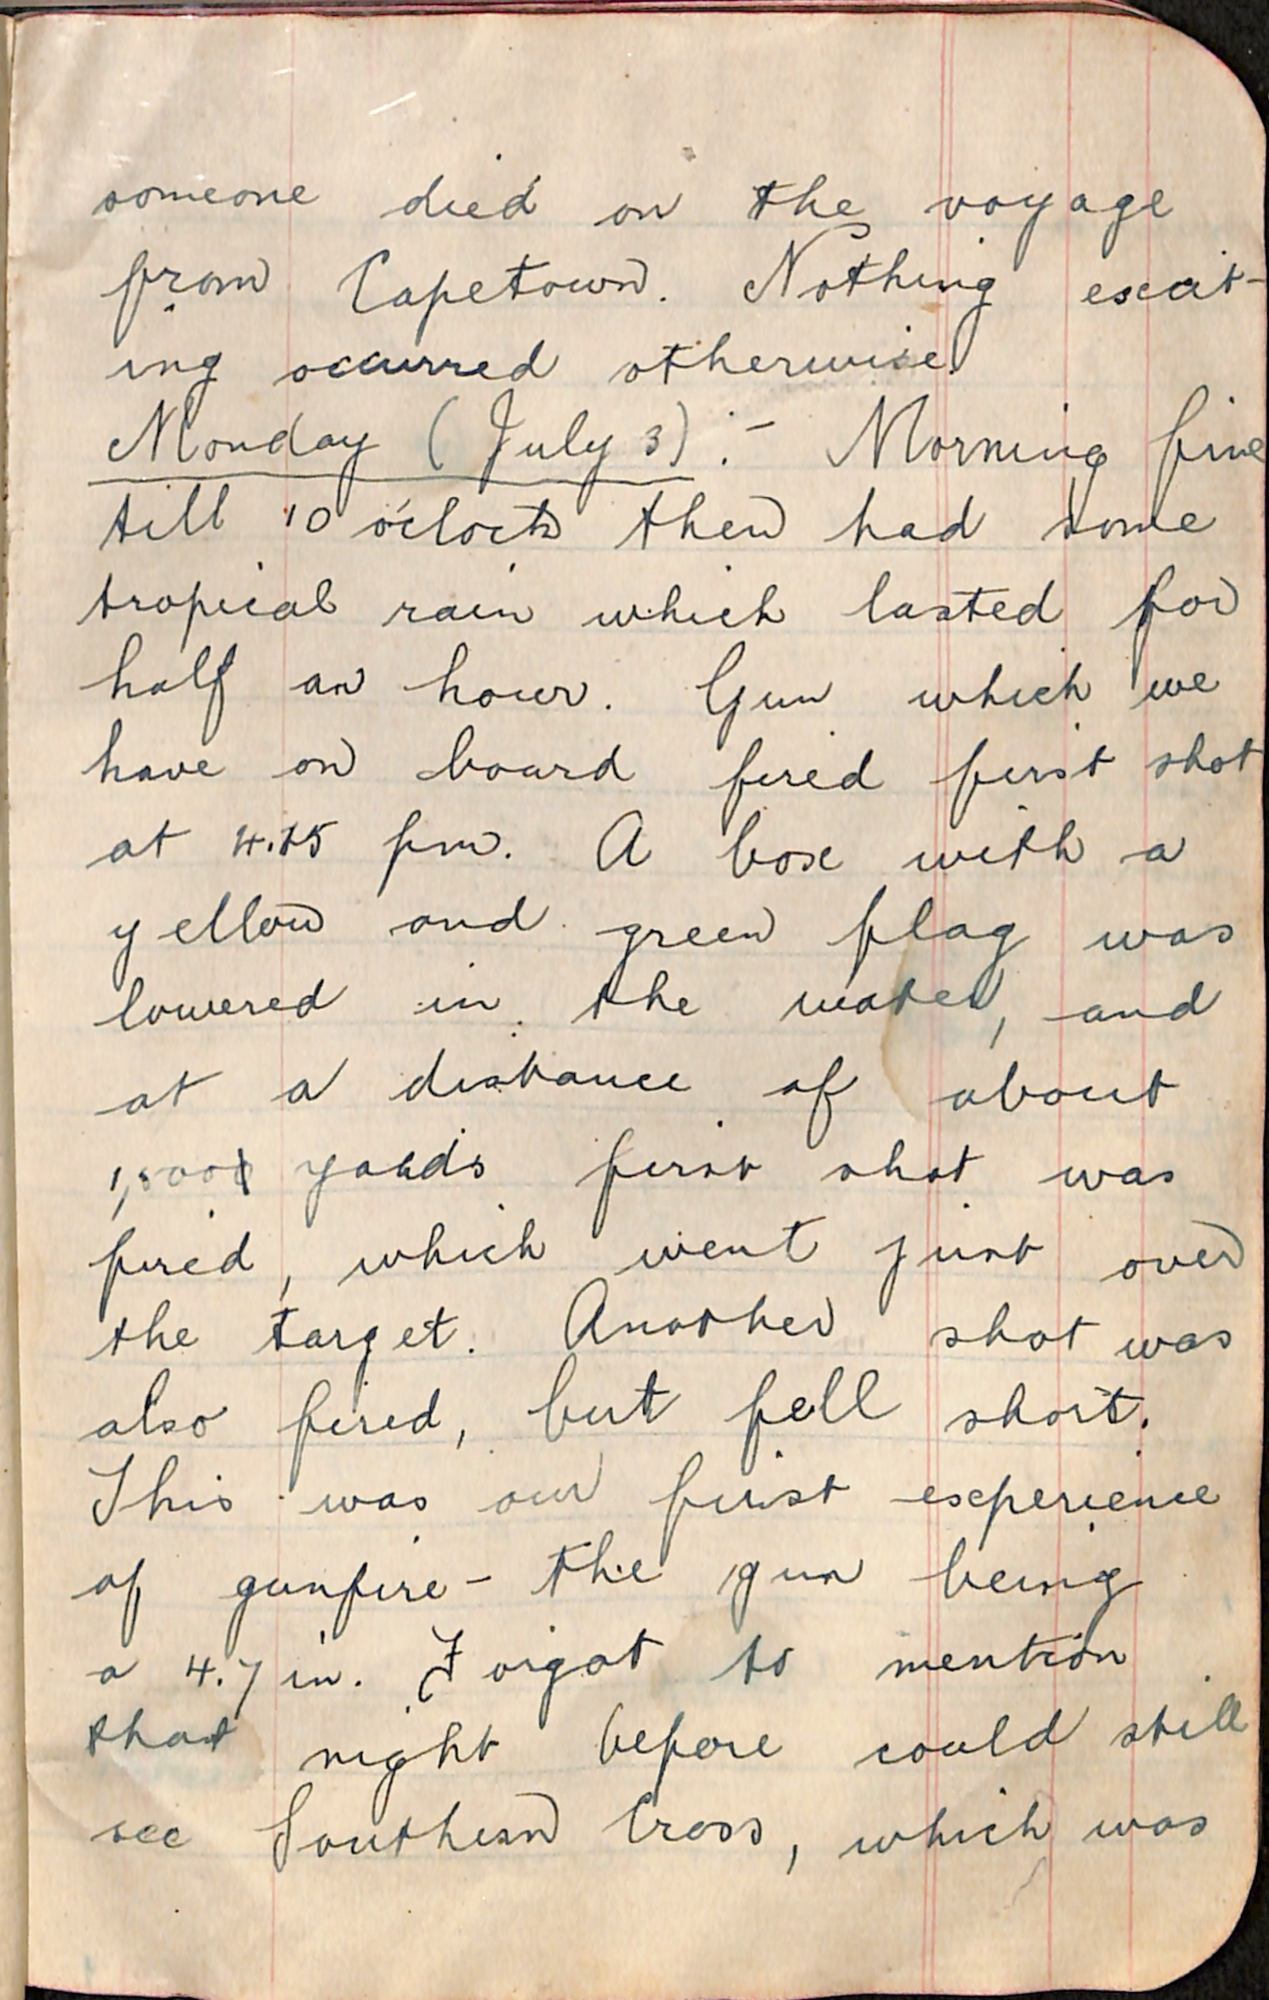 someone died on the voyage
from Capetown. Nothing excit-
ing occurred otherwise.
Monday (July 3) :- Morning fine
till 10 o'clock then had some
tropical rain which lasted for
half an hour. Gun which we
have on board fired first shot
at 4.15 pm. A box with a
yellow and green flag was
lowered in the water, and
at a distance of about
yards first shot was
fired, which went just over
the target. Another shot was
also fired, but fell short.
This was our first experience
of gunfire - the gun being
a 4.7 in. Forgot to mention
that night before could still
see Southern Cross, which was